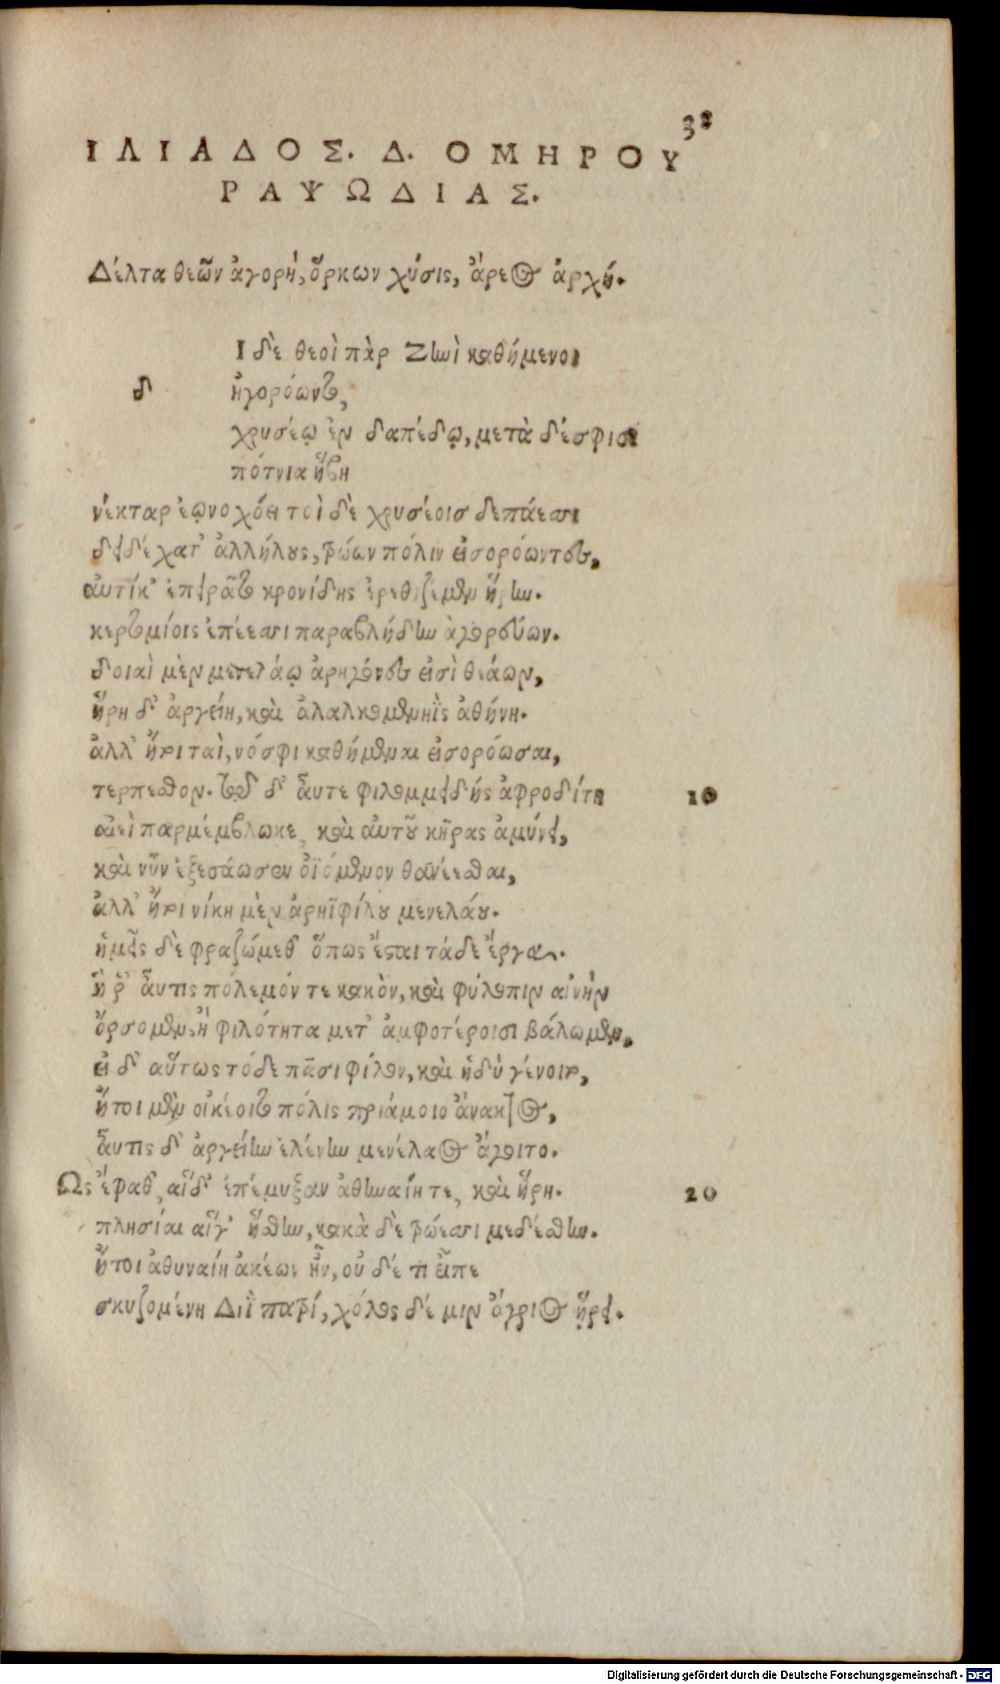 32
ΙΛΙΑΔΟΣ. Δ. ΟΜΗΡΟΥ
ΡΑΨΩΔΙΑΣ.
Δέλτα θεῶν ἀγορὴ, ὅρκων χύσις, ἄρεος ἀρχή.
Ι δὲ θεοὶ πὰρ Ζηνὶ καθήμενοι
δ ἠγορόωντο,
χρυσέῳ ἐν δαπέδῳ, μετὰ δέ σφισι
πότνια ἥβη
νέκταρ ἐῳνοχόει τοὶ δὲ χρυσέοισ δεπάεσσι
δειδέχατ' ἀλλήλους, τρώων πόλιν εἰσορόωντες,
αὐτίκ' ἐπειρᾶτο κρονίδης ἐρεθιζέμεν ἥρην.
κερτομίοις ἐπέεσσι παραβλήδην ἀγορεύων.
δοιαὶ μὲν μενελάῳ ἀρηγόνες εἰσὶ θεάων,
ἥρη δ' ἀργείη, καὶ ἀλαλκομενηῒς ἀθήνη.
ἀλλ' ἤτοι ταὶ, νόσφι καθήμεναι εἰσορόωσαι,
τέρπεσθον. τῷ δ' αὖτε φιλομμειδὴς ἀφροδίτη 10
αἰεὶ παρμέμβλωκε, καὶ αὐτοῦ κῆρας ἀμύνει,
καὶ νῦν ἐξεσάωσεν ὀϊόμενον θανέεσθαι,
ἀλλ' ἤτοι νίκη μὲν ἀρηϊφίλου μενελάου.
ἡμεῖς δὲ φραζώμεθ' ὅπως ἔσται τάδε ἔργα.
ἤ ῥ' αὖτις πόλεμόν τε κακὸν, καὶ φύλοπιν αἰνὴν
ὄρσομεν. ἢ φιλότητα μετ' ἀμφοτέροισι βάλωμεν,
εἰ δ' αὔτως τόδε πᾶσι φίλον, καὶ ἡδὺ γένοιτο,
ἤτοι μὲν οἰκέοιτο πόλις πριάμοιο ἄνακτος,
αὖτις δ' ἀργείην ἑλένην μενέλαος ἄγοιτο.
Ως ἔφαθ', αἵδ' ἐπέμυξαν ἀθηναίη τε, καὶ ἥρη. 20
πλησίαι αἵγ' ἥσθην, κακὰ δὲ τρώεσσι μεδέσθην.
ἤτοι ἀθυναίη ἀκέων ἦν, οὐ δέ τι εἶπε
σκυζομένη Διῒ πατρί, χόλος δέ μιν ἄγριος ᾕρει.
Digitalisierung gefördert durch die Deutsche Forschungsgemeinschaft - DFG